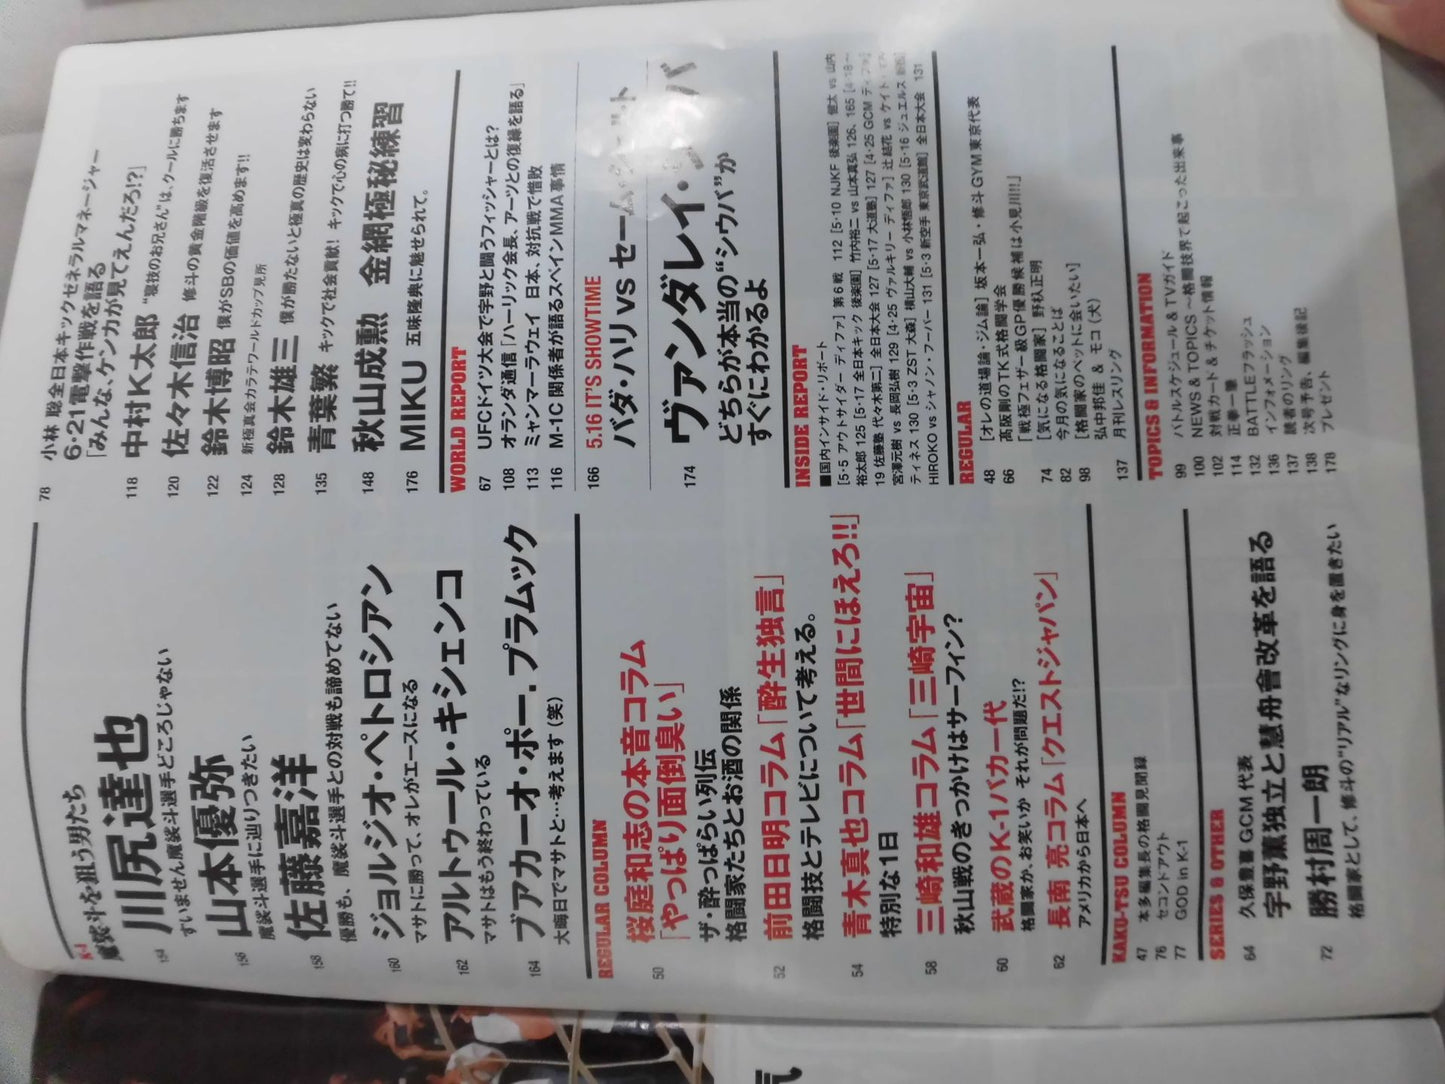 K-1
魔裟斗を狙う男たち
154 川尻達也
すいません魔裟斗選手どころじゃない
156 山本優弥
魔裟斗選手に辿りつきたい
158 佐藤嘉洋
優勝も、魔裟斗選手との対戦も諦めてない
160 ジョルジオ・ペトロシアン
マサトに勝って、オレがエースになる
162 アルトゥール・キシェンコ
マサトはもう終わっている
164 ブアカーオ・ポー.プラムック
大晦日でマサトと…考えます(笑)
REGULAR COLUMN
50 桜庭和志の本音コラム
「やっぱり面倒臭い」
ザ・酔っぱらい列伝
格闘家たちとお酒の関係
52 前田日明コラム「酔生独言」
格闘技とテレビについて考える。
54 青木真也コラム「世間にほえろ!!」
特別な1日
58 三崎和雄コラム「三崎宇宙」
秋山戦のきっかけはサーフィン?
60 武蔵のK-1バカ一代
格闘家か、お笑いか それが問題だ!?
62 長南 亮コラム「クエストジャパン」
アメリカから日本へ
KAKU-TSU COLUMN
47 本多編集長の格闘見聞録
76 セコンドアウト
77 GOD in K-1
SERIES & OTHER
64 久保豊喜 GCM代表
宇野薫独立と慧舟會改革を語る
72 勝村周一朗
格闘家として、修斗の“リアル”なリングに身を置きたい
78 小林 聡全日本キックゼネラルマネージャー
6・21電撃作戦を語る
「みんな、ケンカが見てえんだろ!?」
118 中村K太郎 “寝技のお兄さん”は、クールに勝ちます
120 佐々木信治 修斗の黄金階級を復活させます
122 鈴木博昭 僕がSBの価値を高めます!!
124 新極真会カラテワールドカップ見所
128 鈴木雄三 僕が勝たないと極真の歴史は変わらない
135 青葉繁 キックで社会貢献! キックで心の病に打つ勝て!!
148 秋山成勲 金網極秘練習
176 MIKU 五味隆典に魅せられて。
WORLD REPORT
67 UFCドイツ大会で宇野と闘うフィッシャーとは?
108 オランダ通信「ハーリック会長、アーツとの復縁を語る」
113 ミャンマーラウェイ 日本、対抗戦で惜敗
116 M-1C 関係者が語るスペインMMA事情
166 5.16 IT'S SHOWTIME
バダ・ハリ vs セーム・シュルト
174 ヴァンダレイ・シウバ
どちらが本当の“シウバ”か
すぐにわかるよ
INSIDE REPORT
■国内インサイド・リポート
[5・5 アウトサイダー ディファ] 第6戦 112 [5・10 NJKF 後楽園] 健太 vs 山内
裕太郎 125 [5・17 全日本キック 後楽園] 竹内裕二 vs 山本真弘 126、165 [4・18〜
19 佐藤塾 代々木第二] 全日本大会 127 [5・17 大道塾] 127 [4・25 GCM ディファ]
宮澤元樹 vs 長岡弘樹 129 [4・25 ヴァルキリー ディファ] 辻 結花 vs ケイト・
ティネス 130 [5・3 ZST 大森] 横山大輔 vs 小林悟郎 130 [5・16 ジュエルス 新宿]
HIROKO vs シャノン・フーパー 131 [5・3 新空手 東京武道館] 全日本大会 131
REGULAR
48 [オレの道場論・ジム論] 坂本一弘・修斗GYM東京代表
66 高阪剛のTK式格闘学会
「戦極フェザー級GP優勝候補は小見川!!」
74 [気になる格闘家] 野杁正明
82 今月の気になることば
98 [格闘家のペットに会いたい]
弘中邦佳 & モコ(犬)
137 月刊レスリング
TOPICS & INFORMATION
99 バトルスケジュール&TVガイド
100 NEWS & TOPICS〜格闘技界で起こった出来事
102 対戦カード&チケット情報
114 正拳一撃
132 BATTLEフラッシュ
136 インフォメーション
137 読者のリング
138 次号予告、編集後記
178 プレゼント
気